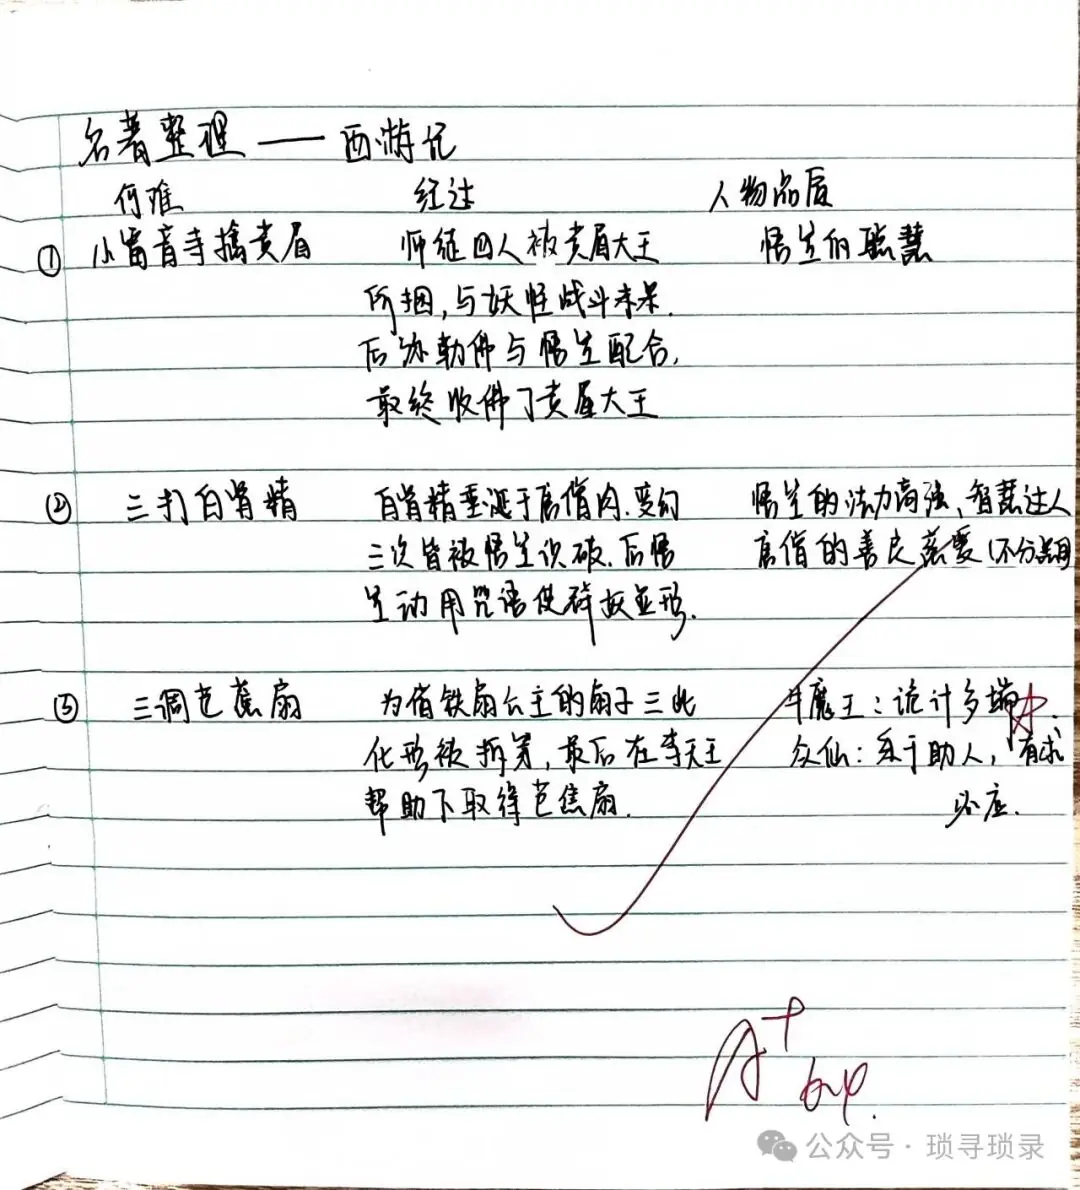 名著整理——西游记
何难 经过 人物品质
① 小雷音寺擒黄眉 师徒四人被黄眉大王 悟空的聪慧
所捆,与妖怪战斗未果.
后弥勒佛与悟空配合,
最终收佛了黄眉大王
② 三打白骨精 白骨精垂涎于唐僧肉.变幻 悟空的法力高强、智慧过人
三次皆被悟空识破.后悟 唐僧的善良慈爱(不分黑白
空动用咒语使碎妖显形.
③ 三调芭蕉扇 为借铁扇公主的扇子三次 牛魔王:诡计多端
化形被拆穿,最后在李天王 众仙:乐于助人,有求
帮助下取得芭蕉扇. 必应.
A+
公众号·琐寻琐录